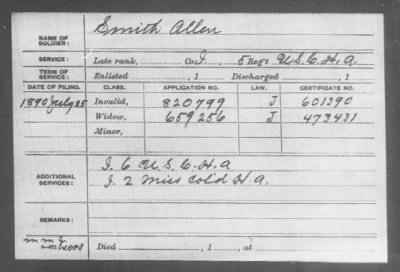 NAME OF SOLDIER: Smith Allen
SERVICE: Late rank, Co. I, 5 Reg't U.S.C.H.A
TERM OF SERVICE: Enlisted , 1 Discharged , 1
DATE OF FILING. CLASS. APPLICATION NO. LAW. CERTIFICATE NO.
1890 July 25 Invalid, 820799 J 601390
Widow, 659256 J 473431
Minor,
ADDITIONAL SERVICES: I. 6 U.S.C.H.A
I. 2 Miss Col'd H.A.
REMARKS:
Died , 1 , at